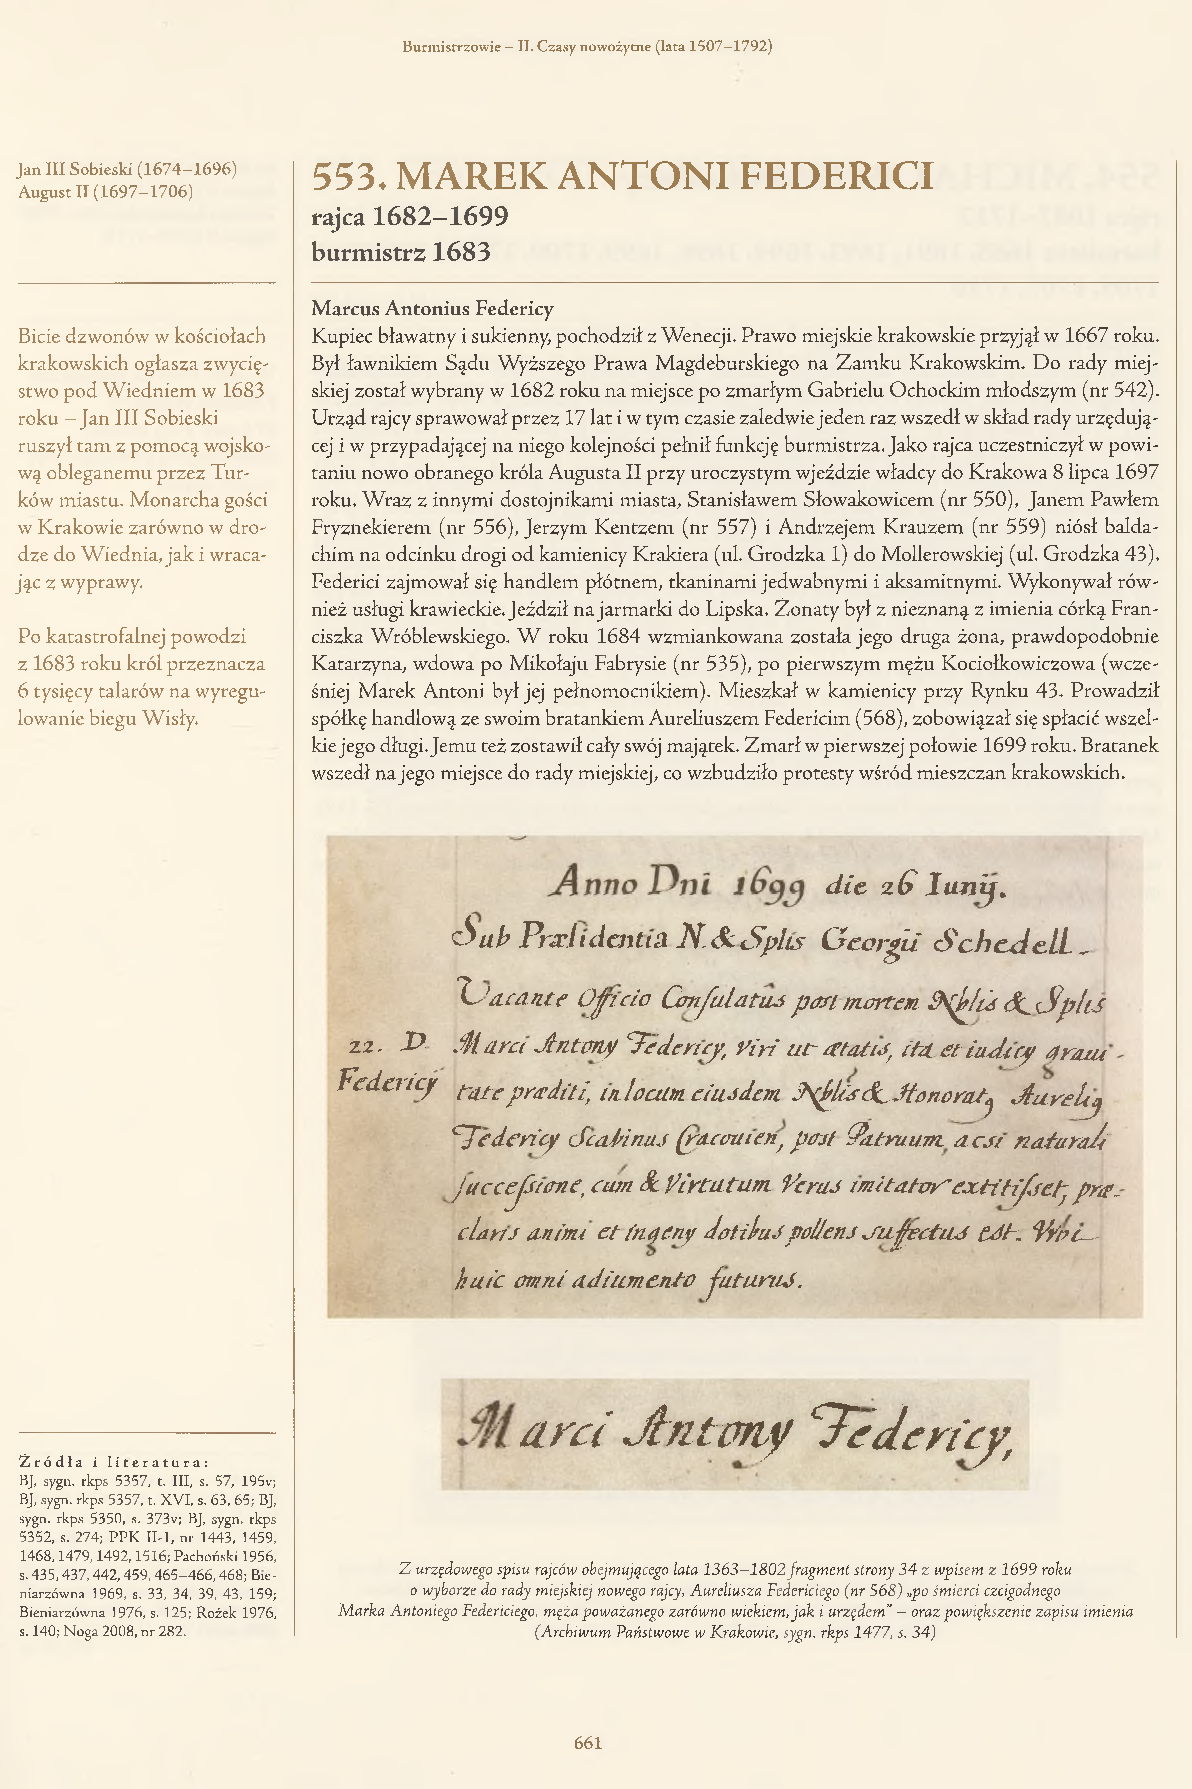 Burmistrzowie – II. Czasy nowożytne (lata 1507–1792)
Jan III Sobieski (1674–1696)
August II (1697–1706)
Bicie dzwonów w kościołach
krakowskich ogłasza zwycię-
stwo pod Wiedniem w 1683
roku – Jan III Sobieski
ruszył tam z pomocą wojsko-
wą obleganemu przez Tur-
ków miastu. Monarcha gości
w Krakowie zarówno w dro-
dze do Wiednia, jak i wraca-
jąc z wyprawy.
Po katastrofalnej powodzi
z 1683 roku król przeznacza
6 tysięcy talarów na wyregu-
lowanie biegu Wisły.
553. MAREK ANTONI FEDERICI
rajca 1682–1699
burmistrz 1683
Marcus Antonius Federicy
Kupiec bławatny i sukienny, pochodził z Wenecji. Prawo miejskie krakowskie przyjął w 1667 roku.
Był ławnikiem Sądu Wyższego Prawa Magdeburskiego na Zamku Krakowskim. Do rady miej-
skiej został wybrany w 1682 roku na miejsce po zmarłym Gabrielu Ochockim młodszym (nr 542).
Urząd rajcy sprawował przez 17 lat i w tym czasie zaledwie jeden raz wszedł w skład rady urzędują-
cej i w przypadającej na niego kolejności pełnił funkcję burmistrza. Jako rajca uczestniczył w powi-
taniu nowo obranego króla Augusta II przy uroczystym wjeździe władcy do Krakowa 8 lipca 1697
roku. Wraz z innymi dostojnikami miasta, Stanisławem Słowakowicem (nr 550), Janem Pawłem
Fryznekierem (nr 556), Jerzym Kentzem (nr 557) i Andrzejem Krauzem (nr 559) niósł balda-
chim na odcinku drogi od kamienicy Krakiera (ul. Grodzka 1) do Mollerowskiej (ul. Grodzka 43).
Federici zajmował się handlem płótnem, tkaninami jedwabnymi i aksamitnymi. Wykonywał rów-
nież usługi krawieckie. Jeździł na jarmarki do Lipska. Żonaty był z nieznaną z imienia córką Fran-
ciszka Wróblewskiego. W roku 1684 wzmiankowana została jego druga żona, prawdopodobnie
Katarzyna, wdowa po Mikołaju Fabrysie (nr 535), po pierwszym mężu Kociołkowiczowa (wcze-
śniej Marek Antoni był jej pełnomocnikiem). Mieszkał w kamienicy przy Rynku 43. Prowadził
spółkę handlową ze swoim bratankiem Aureliuszem Federicim (568), zobowiązał się spłacić wszel-
kie jego długi. Jemu też zostawił cały swój majątek. Zmarł w pierwszej połowie 1699 roku. Bratanek
wszedł na jego miejsce do rady miejskiej, co wzbudziło protesty wśród mieszczan krakowskich.
Anno Dni 1699 die 26 Iunij.
Sub Præsidentia N. & Splis Georgii Schedell
Vacante Officio Consulatûs post mortem Nblis & Splis
22. D. Marci Antony Federicy, Viri ut ætatis, ita et iudicy graui-
Federicy tate præditi, in locum eiusdem Nblis & Honorat Aureli
Federicy Scabinus Cracouien, post Patruum, ac si naturali
successione, cum & Virtutum Verus imitator extitisset, præ-
claris animi et ingeny dotibus pollens suffectus est. Vrbi
huic omni adiumento futurus.
Marci Antony Federicy,
Źródła i literatura:
BJ, sygn. rkps 5357, t. III, s. 57, 195v;
BJ, sygn. rkps 5357, t. XVI, s. 63, 65; BJ,
sygn. rkps 5350, s. 373v; BJ, sygn. rkps
5352, s. 274; PPK II-1, nr 1443, 1459,
1468, 1479, 1492, 1516; Pachoński 1956,
s. 435, 437, 442, 459, 465–466, 468; Bie-
niarzówna 1969, s. 33, 34, 39, 43, 159;
Bieniarzówna 1976, s. 125; Rożek 1976,
s. 140; Noga 2008, nr 282.
Z urzędowego spisu rajców obejmującego lata 1363–1802 fragment strony 34 z wpisem z 1699 roku
o wyborze do rady miejskiej nowego rajcy, Aureliusza Federiciego (nr 568) „po śmierci czcigodnego
Marka Antoniego Federiciego, męża poważanego zarówno wiekiem, jak i urzędem” – oraz powiększenie zapisu imienia
(Archiwum Państwowe w Krakowie, sygn. rkps 1477, s. 34)
661